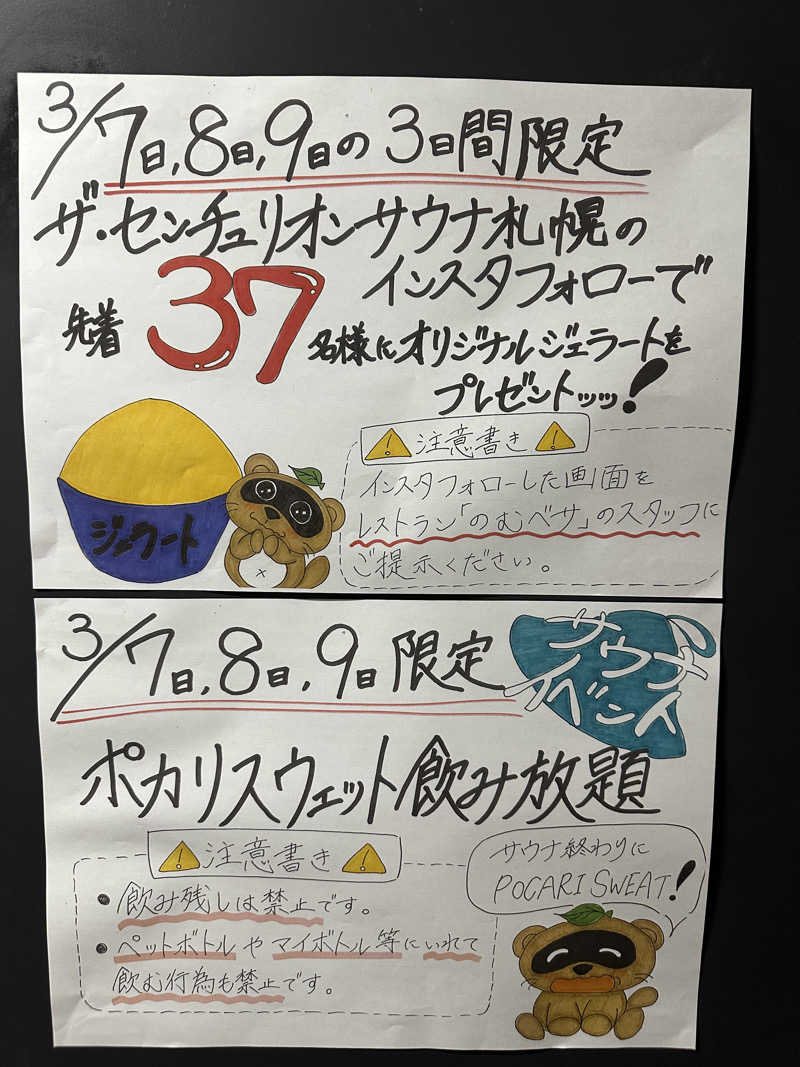 3/7日,8日,9日の3日間限定
ザ・センチュリオンサウナ札幌の
インスタフォローで
先着37名様にオリジナルジェラートを
プレゼントッッ!
ジェラート
注意書き
インスタフォローした画面を
レストラン「のむべサ」のスタッフに
ご提示ください。
3/7日,8日,9日限定
サウナ
イベント
ポカリスウェット飲み放題
注意書き
・飲み残しは禁止です。
・ペットボトルやマイボトル等にいれて
飲む行為も禁止です。
サウナ終わりに
POCARI SWEAT!